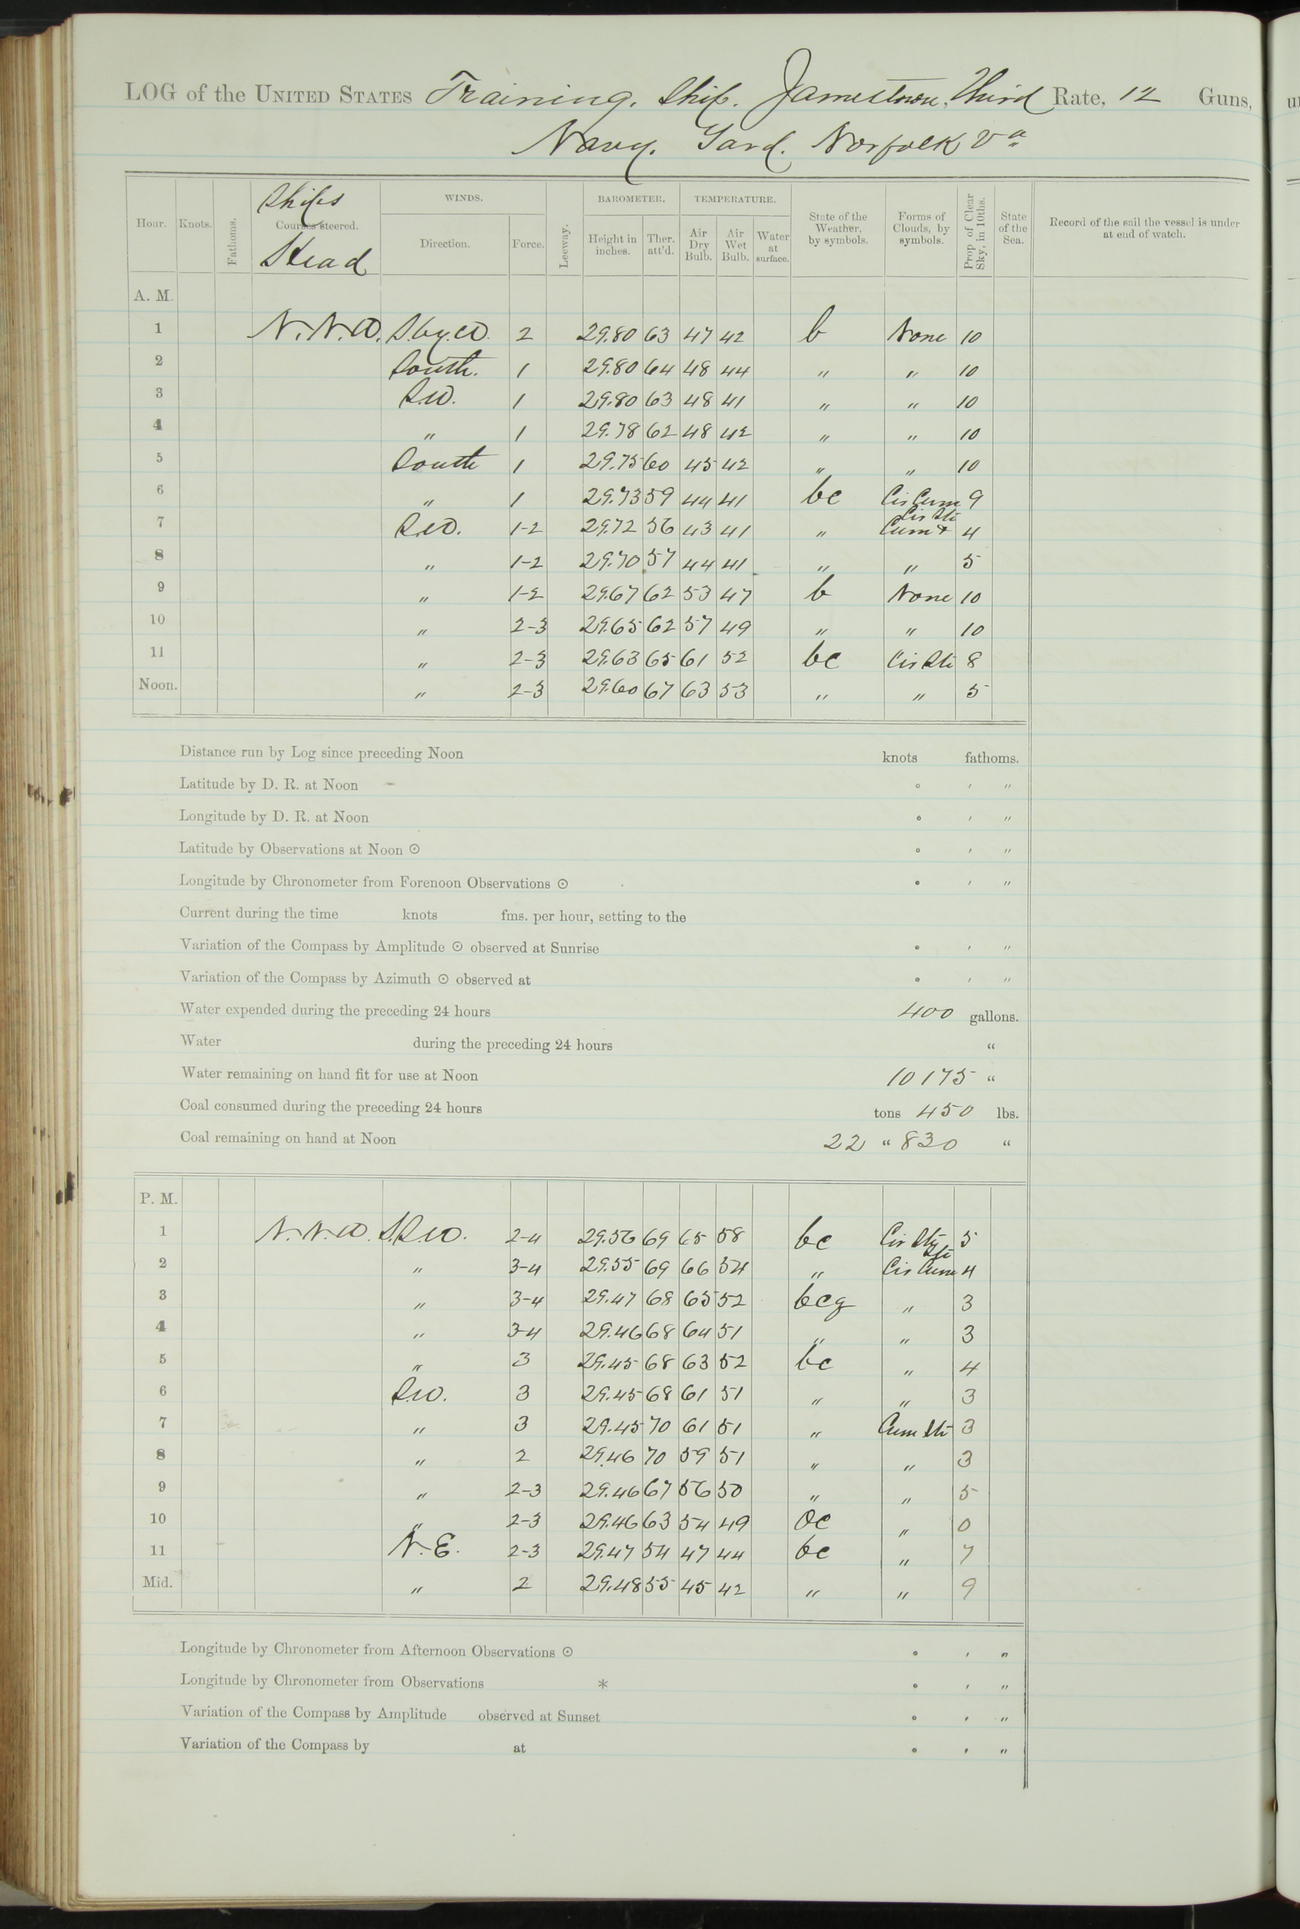 LOG of the UNITED STATES Training. Ship. Jamestown, Third Rate, 12 Guns,
Navy. Yard. Norfolk Va
Hour. Knots. Fathoms. Ships Courses steered. Head WINDS. Direction. Force. Leeway. BAROMETER. Height in inches. Ther. att'd. TEMPERATURE. Air Dry Bulb. Air Wet Bulb. Water at surface. State of the Weather, by symbols. Forms of Clouds, by symbols. Prop. of Clear Sky, in 10ths. State of the Sea. Record of the sail the vessel is under at end of watch.
A. M.
1 N.N.W. S.by.W. 2 29.80 63 47 42 b None 10
2 South. 1 29.80 64 48 44 " " 10
3 S.W. 1 29.80 63 48 41 " " 10
4 " 1 29.78 62 48 42 " " 10
5 South 1 29.75 60 45 42 " " 10
6 " 1 29.73 59 44 41 bc Cir Cum 9
7 S.W. 1-2 29.72 56 43 41 " Cum & Cir Str 4
8 " 1-2 29.70 57 44 41 " " 5
9 " 1-2 29.67 62 53 47 b None 10
10 " 2-3 29.65 62 57 49 " " 10
11 " 2-3 29.63 65 61 52 bc Cir Str 8
Noon. " 2-3 29.60 67 63 53 " " 5
Distance run by Log since preceding Noon knots fathoms.
Latitude by D. R. at Noon ° ′ ″
Longitude by D. R. at Noon ° ′ ″
Latitude by Observations at Noon ☉ ° ′ ″
Longitude by Chronometer from Forenoon Observations ☉ ° ′ ″
Current during the time knots fms. per hour, setting to the
Variation of the Compass by Amplitude ☉ observed at Sunrise ° ′ ″
Variation of the Compass by Azimuth ☉ observed at ° ′ ″
Water expended during the preceding 24 hours 400 gallons.
Water during the preceding 24 hours "
Water remaining on hand fit for use at Noon 10175 "
Coal consumed during the preceding 24 hours tons 450 lbs.
Coal remaining on hand at Noon 22 " 830 "
P. M.
1 N.N.W. S.S.W. 2-4 29.56 69 65 58 bc Cir Str 5
2 " 3-4 29.55 69 66 54 " Str Cir Cum 4
3 " 3-4 29.47 68 65 52 bcq " 3
4 " 3-4 29.46 68 64 51 " " 3
5 " 3 29.45 68 63 52 bc " 4
6 S.W. 3 29.45 68 61 51 " " 3
7 " 3 29.45 70 61 51 " Cum Str 3
8 " 2 29.46 70 59 51 " " 3
9 " 2-3 29.46 67 56 50 " " 5
10 " 2-3 29.46 63 54 49 oc " 0
11 N.E. 2-3 29.47 54 47 44 bc " 7
Mid. " 2 29.48 55 45 42 " " 9
Longitude by Chronometer from Afternoon Observations ☉ ° ′ ″
Longitude by Chronometer from Observations * ° ′ ″
Variation of the Compass by Amplitude observed at Sunset ° ′ ″
Variation of the Compass by at ° ′ ″